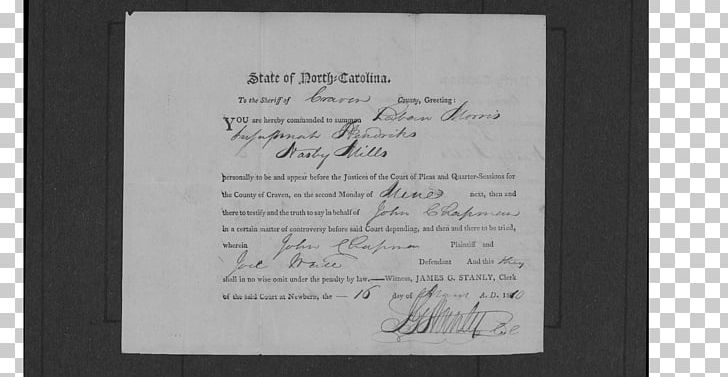 State of North-Carolina.
To the Sheriff of Craven County, Greeting:
YOU are hereby commanded to summon Morris
Hendriks
Nasby Mills
personally to be and appear before the Justices of the Court of Pleas and Quarter-Sessions for
the County of Craven, on the second Monday of next, then and
there to testify and the truth to say in behalf of John Chapman
in a certain matter of controversy before said Court depending, and then and there to be tried,
wherein John Chapman Plaintiff and
Defendant And this they
shall in no wise omit under the penalty by law.—Witness, JAMES G. STANLY, Clerk
of the said Court at Newbern, the — 16 day of A. D. 18
J G Stanly